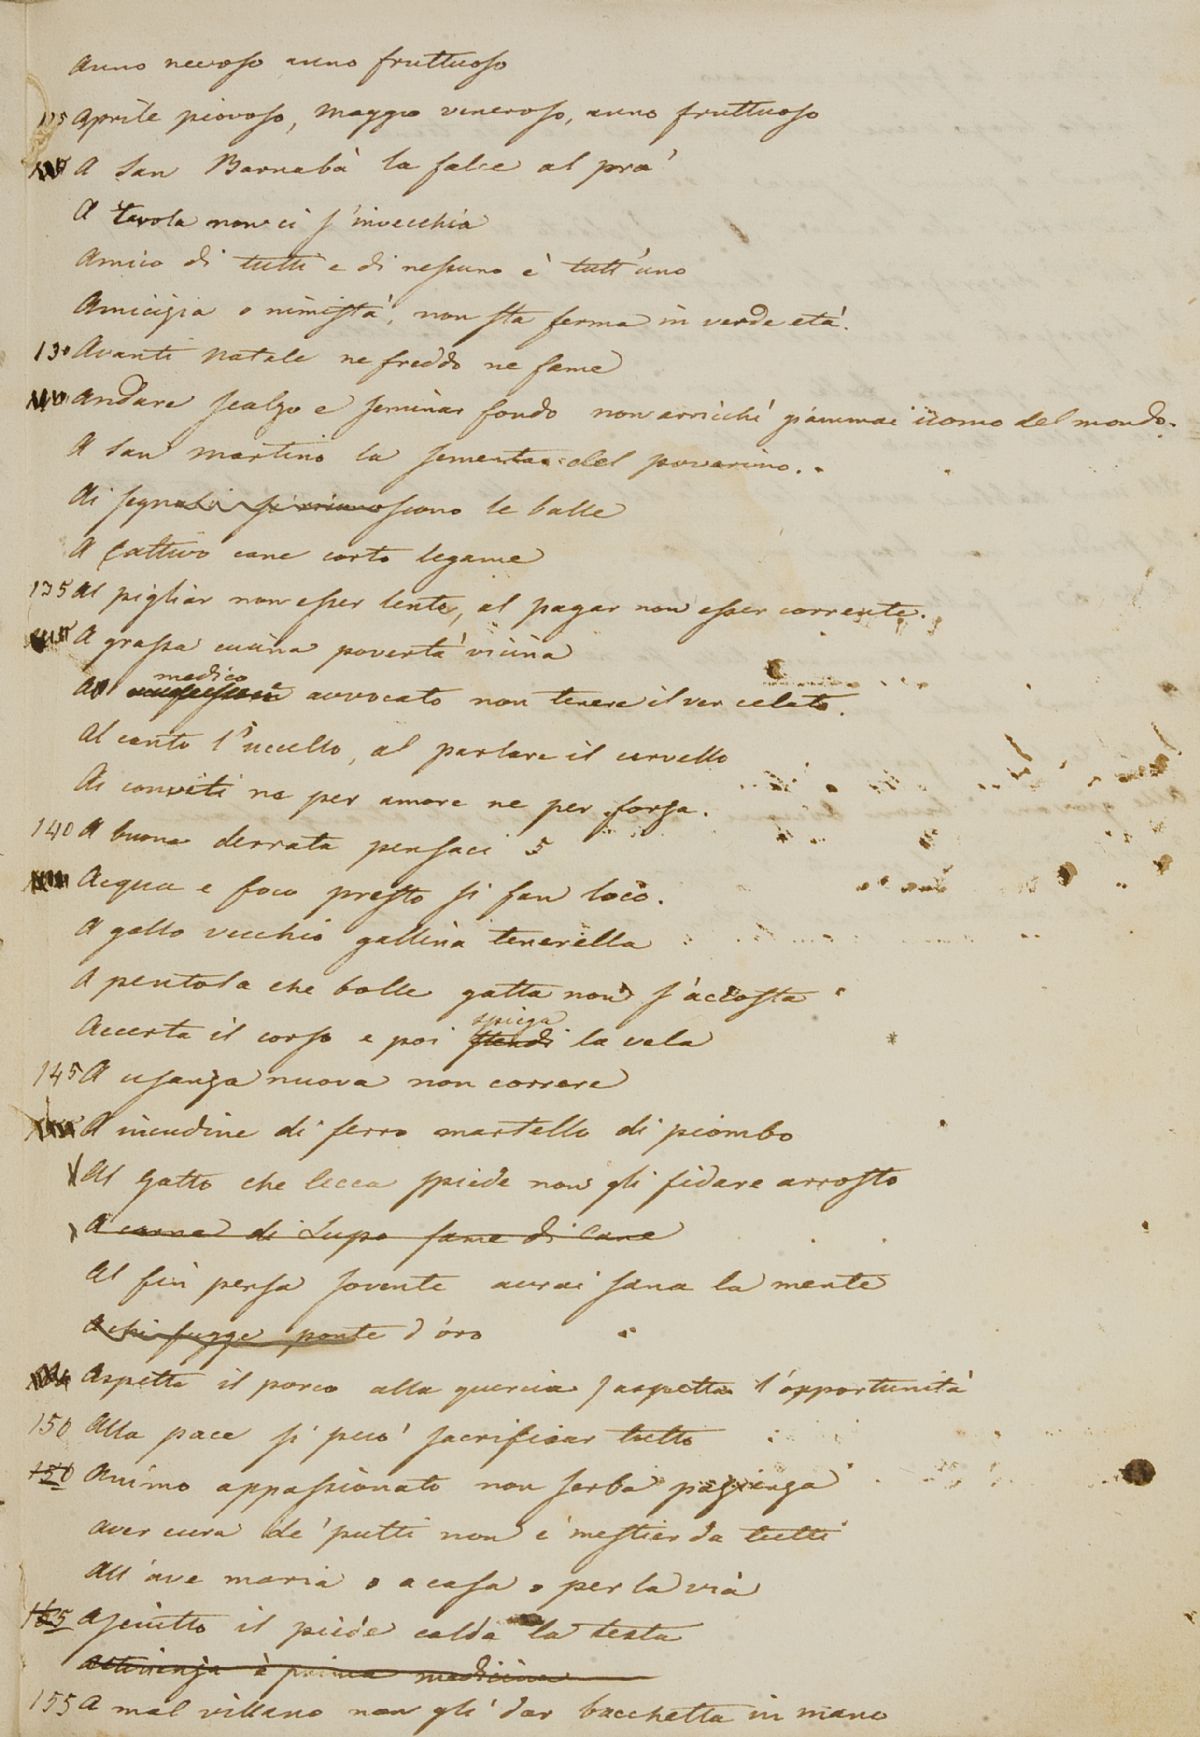 Anno nevoso anno fruttuoso
125 Aprile piovoso, Maggio veneroso, anno fruttuoso
A San Barnabà la falce al prà
A tavola non ci s'invecchia
Amico di tutti e di nessuno è tutt'uno
Amicizia o nimistà, non sta ferma in verde età.
130 Avanti Natale ne freddo ne fame
Andare scalzo e seminar fondo non arricchì giammai uomo del mondo.
A San Martino la sementa del poverino..
Ai segnali si riconoscono le balle
A cattivo cane corto legame
135 Al pigliar non esser lento, al pagar non esser corrente.
A grassa cucina povertà vicina
Al medico e avvocato non tenere il ver celato.
Al canto l'uccello, al parlare il cervello
Ai conviti ne per amore ne per forza.
140 A buona derrata pensaci 5
Acqua e foco presto si fan loco.
A gallo vecchio gallina tenerella
A pentola che bolle gatta non s'accosta
Accerta il corso e poi stendi spiega la vela
145 A usanza nuova non correre
A incudine di ferro martello di piombo
Al gatto che lecca spiede non gli fidare arrosto
A carne di Lupo fame di Cane
Al fin pensa sovente avrai sana la mente
A chi fugge ponte d'oro
Aspetta il porco alla quercia s'aspetta l'opportunità
150 Alla pace si può sacrificar tutto
150 Animo appassionato non serba pazienza
Aver cura de' putti non è mestier da tutti
All'ave maria o a casa o per la via
155 Asciutto il piede calda la testa
Astinenza è prima medicina
155 A mal villano non gli dar bacchetta in mano